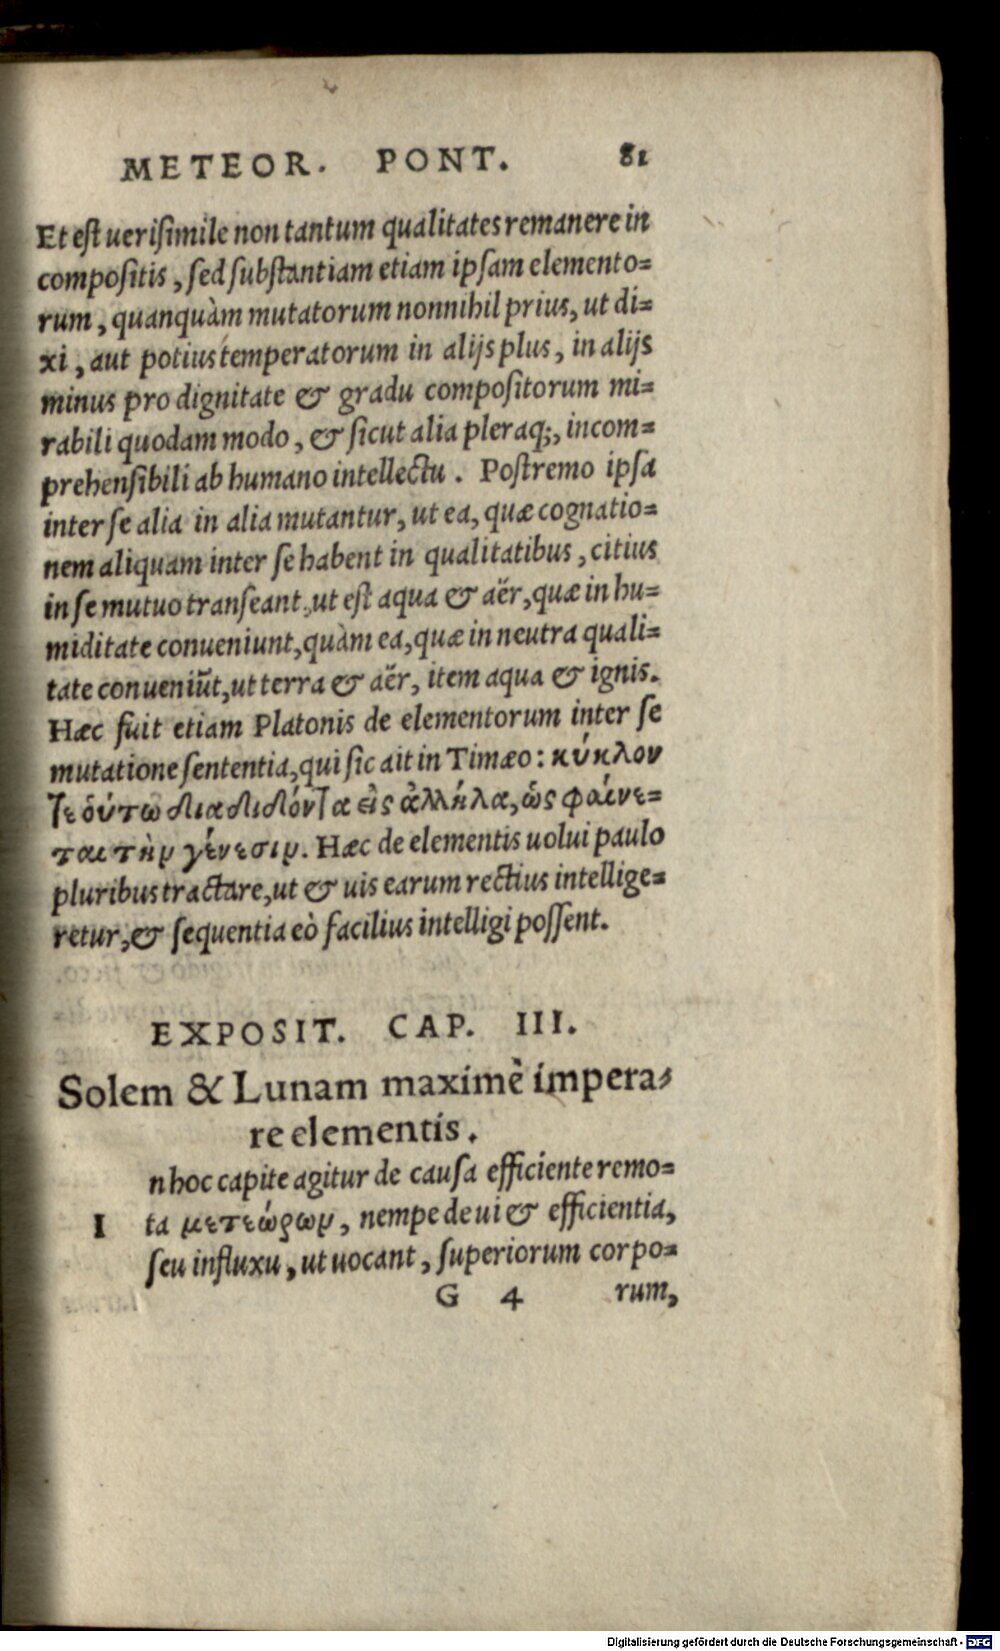 METEOR. PONT. 81
Et est uerisimile non tantum qualitates remanere in
compositis, sed substantiam etiam ipsam elemento=
rum, quanquàm mutatorum nonnihil prius, ut di=
xi, aut potius temperatorum in alijs plus, in alijs
minus pro dignitate & gradu compositorum mi=
rabili quodam modo, & sicut alia pleraq;, incom=
prehensibili ab humano intellectu. Postremo ipsa
inter se alia in alia mutantur, ut ea, quæ cognatio=
nem aliquam inter se habent in qualitatibus, citius
in se mutuo transeant, ut est aqua & aër, quæ in hu=
miditate conueniunt, quàm ea, quæ in neutra quali=
tate conueniũt, ut terra & aër, item aqua & ignis.
Hæc fuit etiam Platonis de elementorum inter se
mutatione sententia, qui sic ait in Timæo: κύκλον
τε ὁύτω διαδιδόντα εἰς ἀλλήλα, ὡς φαίνε=
ται τὴν γένεσιν. Hæc de elementis uolui paulo
pluribus tractare, ut & uis earum rectius intellige=
retur, & sequentia eò facilius intelligi possent.
EXPOSIT. CAP. III.
Solem & Lunam maximè impera=
re elementis.
In hoc capite agitur de causa efficiente remo=
ta μετεώρων, nempe de ui & efficientia,
seu influxu, ut uocant, superiorum corpo=
G 4 rum,
Digitalisierung gefördert durch die Deutsche Forschungsgemeinschaft - DFG